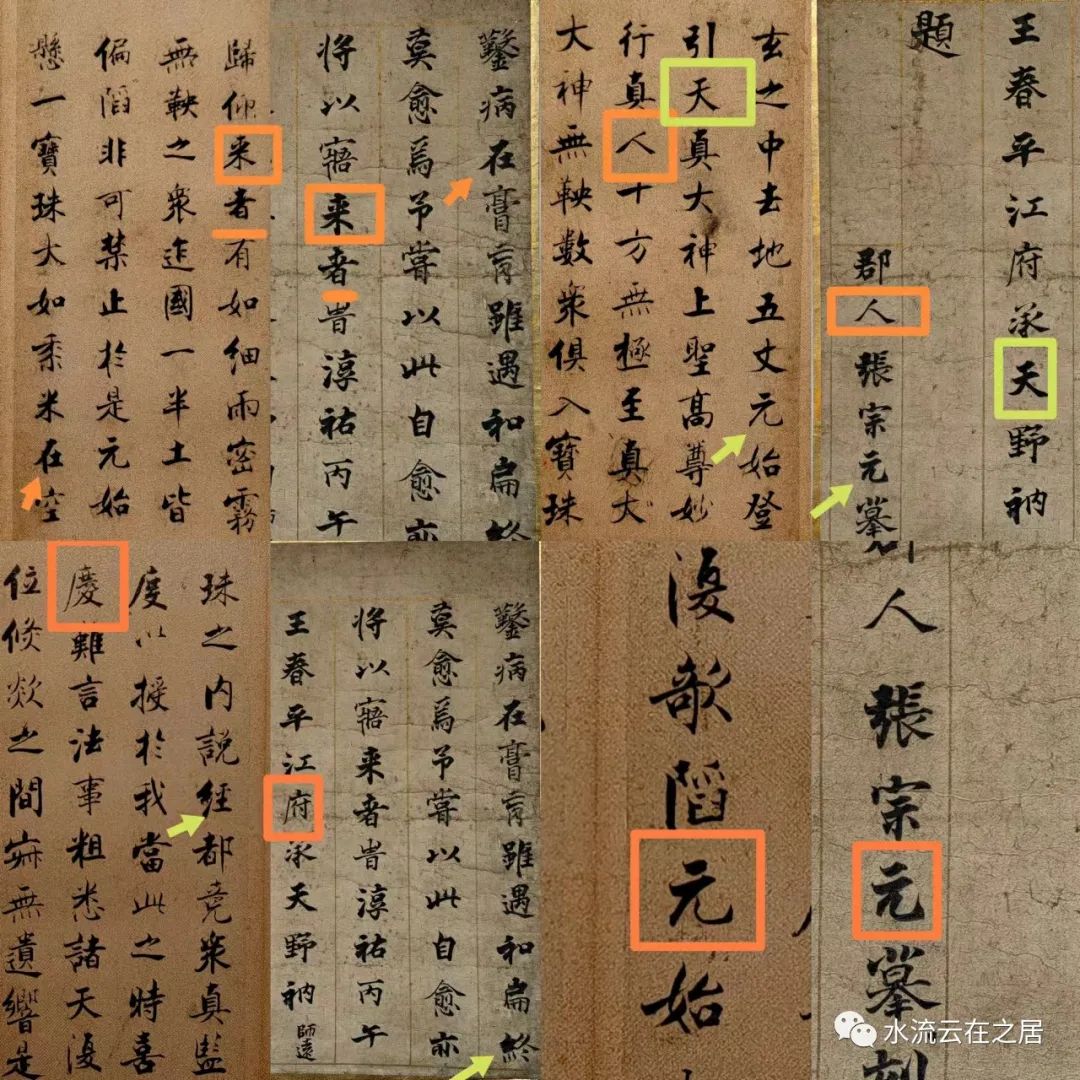 歸仰来者有如细雨密霧
無鞅之衆迮國一半土皆
偏陷非可禁止於是元始
懸一寶珠大如黍米在空
鑿病在膏肓雖遇和扁終
莫愈焉予嘗以此自愈亦
将以寤来者旹淳祐丙午
玄之中去地五丈元始登
引天真大神上聖髙尊妙
行真人十方無極至真大
大神無鞅數衆俱入寶珠
王春平江府承天野衲
題
郡人張宗元摹
珠之内説經都竟衆真監
度以授於我當此之時喜
慶難言法事粗悉諸天復
位倐欻之間寂無遺響是
鑿病在膏肓雖遇和扁終
莫愈焉予嘗以此自愈亦
将以寤来者旹淳祐丙午
王春平江府承天野衲師遠
復欹陷元始
人張宗元摹刻
水流云在之居